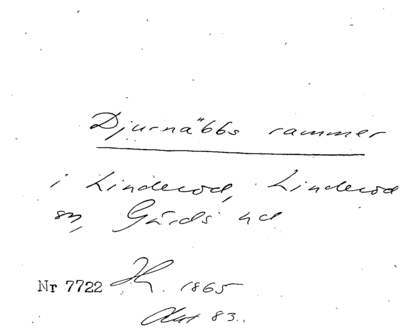 Djurnäbbs rammer
i Linderöd, Linderöd
sn, Gärds hd
Nr 7722 1865
83.